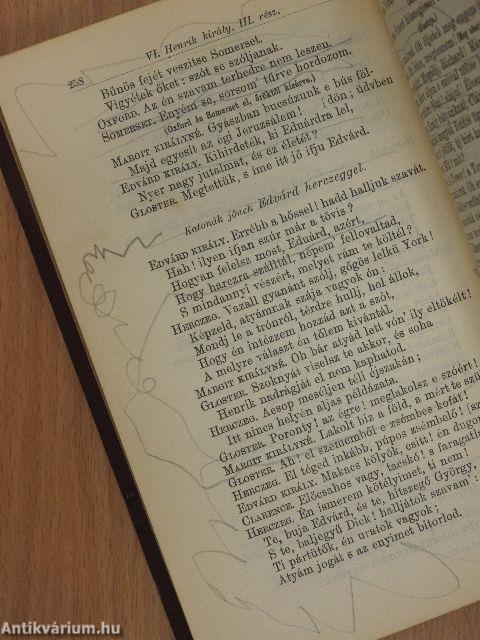 258
VI. Henrik király. III. rész.
Bűnös fejét veszítse Somerset.
Vigyétek őket: szót se szóljanak.
OXFORD. Az én szavam terhedre nem leszen.
SOMERSET. Enyém se, sorsom' tűrve hordozom.
(Oxford és Somerset el, őröktől kisérve.)
MARGIT KIRÁLYNÉ. Gyászban bucsúzunk e bús föl-
Majd egyesít az égi Jeruzsálem! [dön; üdvben
EDVÁRD KIRÁLY. Kihirdeték, ki Edvárdra lel,
Nyer nagy jutalmat, és ez életét?
GLOSTER. Megtették, s íme itt jő ifju Edvárd.
Katonák jőnek Edvárd herczeggel.
EDVÁRD KIRÁLY. Errébb a hőssel! hadd halljuk szavát.
Hah! ilyen ifjan szúr már a tövis?
Hogyan felelsz most, Eduárd, azért,
Hogy harczra szálltál, népem fellovaltad,
S mindannyi vészért, melyet rám te költél?
HERCZEG. Vazall gyanánt szólj, gőgös lelkü York!
Képzeld, atyámnak szája vagyok én:
Mondj le a trónról, térdre hullj, hol állok,
Hogy én intézzem hozzád azt a szót,
A melyre választ én tőlem kivántál.
MARGIT KIRÁLYNÉ. Oh bár atyád lett vón' ily eltökélt!
GLOSTER. Szoknyát viselsz te akkor, és soha
Henrik nadrágját el nem kaphatod.
HERCZEG. Aesop meséljen téli éjszakán;
Itt nincs helyén aljas példázata.
GLOSTER. Poronty! az égre! meglakolsz e szóért!
MARGIT KIRÁLYNÉ. Lakolt biz a föld, a mért te szü
GLOSTER. Ah! el szememből e zsémbes kofát!
HERCZEG. El téged inkább, púpos zsémbelő!
EDVÁRD KIRÁLY. Makacs kölyök, csitt! én dugom
CLARENCE. Előcsahos vagy, tacskó! s faragatla
HERCZEG. Én ismerem kötélyimet, ti nem!
Te, buja Edvárd, és te, hitszegő György,
S te, baljegyű Dick! halljátok szavam':
Ti pártütők, én uratok vagyok;
Atyám jogát s az enyimet bitorlod.
Antikvárium.hu